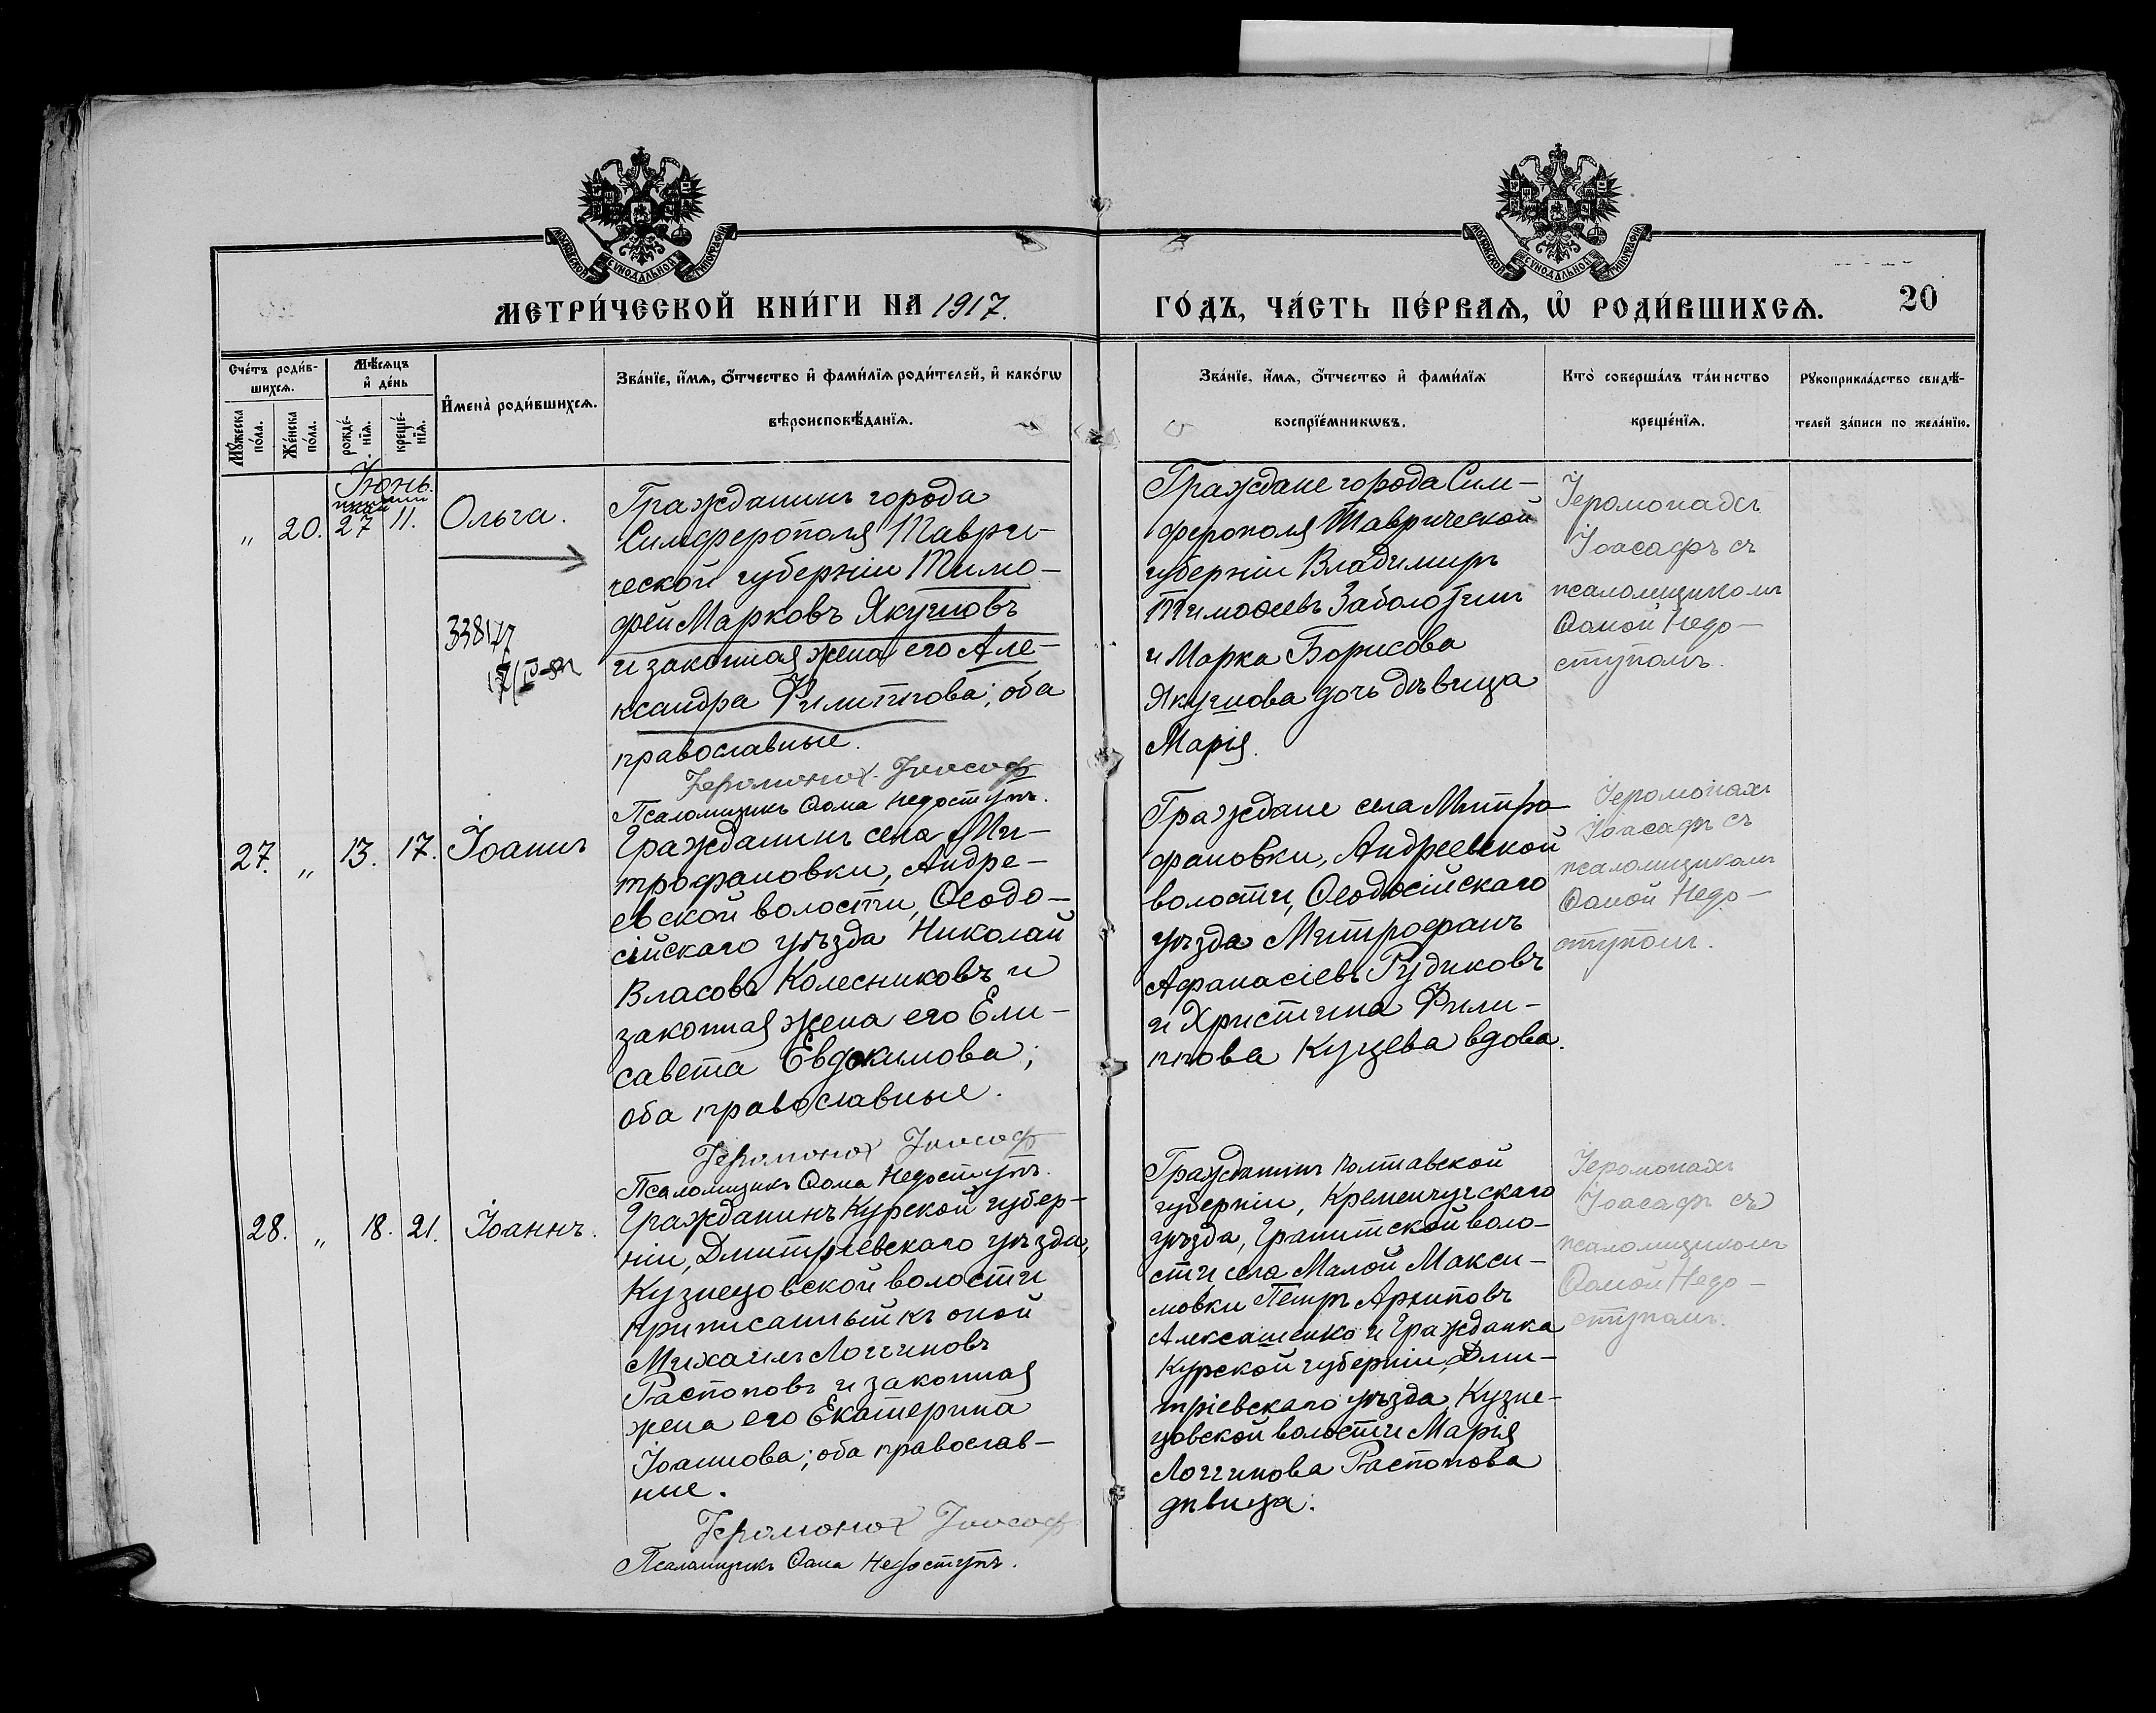 МЕТРИ́ЧЕСКОЙ КНИ́ГИ НА 1917.
ГО́ДЪ, ЧА́СТЬ ПЕ́РВАѦ, Ѡ҆ РОДИ́ВШИХСѦ.
20
Сче́тъ роди́в-
шихсѧ.
Мꙋ́жеска
по́ла.
Же́нска
по́ла.
Мѣ́сѧцъ
и҆ де́нь
рожде́-
нїѧ.
креще́-
нїѧ.
И҆мена̀ роди́вшихсѧ.
Зва́нїе, и҆́мѧ, ѻ҆́тчество и҆ фами́лїѧ роди́телей, и҆ како́гѡ
вѣроисповѣ́данїѧ.
Зва́нїе, и҆́мѧ, ѻ҆́тчество и҆ фами́лїѧ
воспрїе́мникѡвъ.
Кто̀ соверша́лъ та́инство
креще́нїѧ.
Рꙋкоприкла́дство свидѣ́-
телей за́писи по жела́нїю.
Іюнь.
" 20. 27 11. Ольга.
Гражданинъ города
Симферополя Таври-
ческой губерніи Тимо-
фей Марковъ Якушовъ
и законная жена его Але-
ксандра Филиппова; оба
православные.
Іеромонах Іоасаф
Псаломщикъ Ѳома Недоступъ.
Граждане города Сим-
ферополя Таврической
губерніи Владимиръ
Тимоѳеевъ Заболотин
и Марка Борисова
Якушова дочь дѣвица
Марія.
Іеромонахъ
Іоасафъ съ
псаломщикомъ
Ѳомой Недо-
ступомъ.
27. " 13. 17. Іоаннъ
Гражданинъ села Ми-
трофановки, Андре-
евской волости, Ѳеодо-
сійскаго уѣзда Николай
Власовъ Колесниковъ и
законная жена его Ели-
савета Евдокимова;
оба православные.
Іеромонах Іоасаф
Псаломщикъ Ѳома Недоступъ.
Граждане села Митро-
фановки, Андреевской
волости, Ѳеодосійскаго
уѣзда Митрофанъ
Афанасіевъ Рудиковъ
и Христина Фили-
ппова Куцева вдова.
Іеромонахъ
Іоасафъ съ
псаломщикомъ
Ѳомой Недо-
ступомъ.
28. " 18. 21. Іоаннъ.
Гражданинъ Курской губер-
ніи, Дмитріевскаго уѣзда,
Кузнецовской волости
приписанный къ оной
Михаилъ Логгиновъ
Распоповъ и законная
жена его Екатерина
Іоаннова; оба православ-
ные.
Іеромонах Іоасаф
Псаломщикъ Ѳома Недоступъ.
Гражданинъ Полтавской
губерніи, Кременчугскаго
уѣзда, волo-
сти, села Малой Макси-
мовки Петръ Архиповъ
Алексашенко и Гражданка
Курской губерніи, Дми-
тріевскаго уѣзда, Кузне-
цовской волости Марія
Логгинова Распопова
дѣвица.
Іеромонахъ
Іоасафъ съ
псаломщикомъ
Ѳомой Недо-
ступомъ.